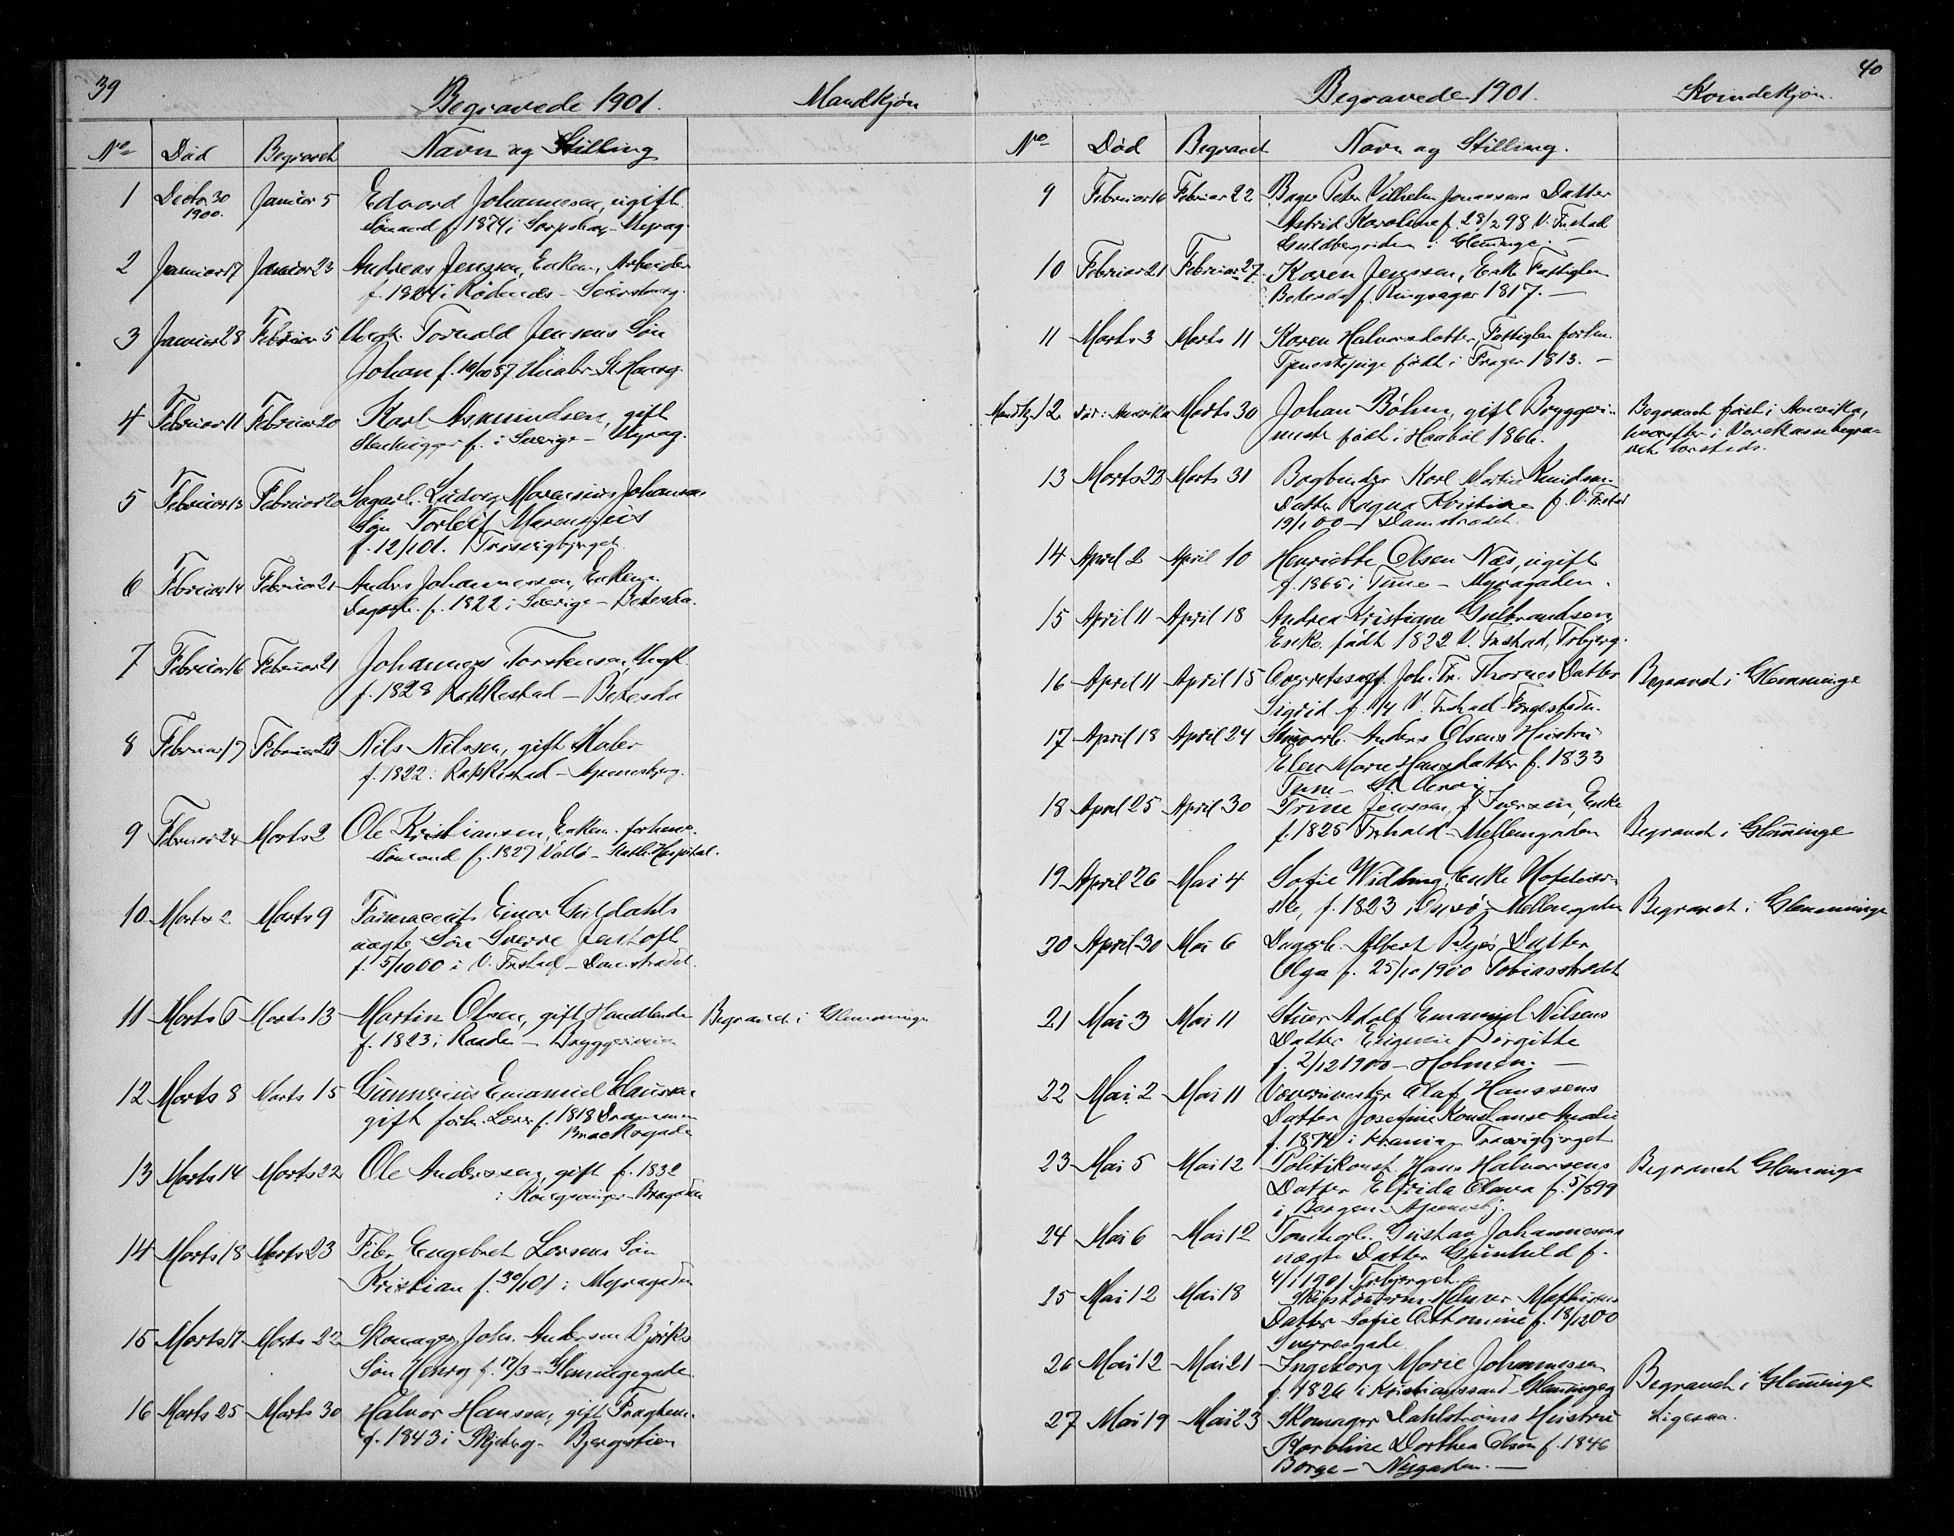 39
Begravede 1901. Mandkjøn
No Død Begravet Navn og Stilling
1 Decbr. 30 1900. Januar 5 Edvard Johannesen, ugift
Sømand f. 1874 i Sarpsborg - Myrag.
2 Januar 17 Januar 23 Andreas Jenssen, Enkem. Arbeider
f. 1824 i Rødenes -
3 Januar 28 Februar 5 Torvald Jensens Søn
Johan f.
4 Februar 11 Februar 20 Karl Asmundsen, gift
Stenhugger f. i Sverige - Myrag.
5 Februar 13 Februar 20 Dagarb. Ludvig Marensius Johansens
Søn Torleif Marensius
f. 12/1 01. Trosvigbjerget
6 Februar 14 Februar 21 Anders Johannessen, Enkem.
Dagarb. f. 1822 i Sverige - Betesda.
7 Februar 16 Februar 21 Johannes Torstensen, Ungk.
f. 1828 Rakkestad - Betesda
8 Februar 17 Februar 23 Nils Nilssen, gift Maler
f. 1822 i Rakkestad - Apenesbjerg.
9 Februar 24 Marts 2 Ole Kristiansen, Enkem. forhenv.
Sømand f. 1827 Vallø - Hospital.
10 Marts 2 Marts 9 Farmaceut Einar Guldahls
uægte Søn Sverre
f. 5/10 00 i V. Frstad - Damstrædet.
11 Marts 6 Marts 13 Martin Olsen, gift Handlende Begravet i Glemminge
f. 1823 i Raade - Bryggeriveien
12 Marts 8 Marts 15 Gunnerius Emanuel Clausen
gift forh. Lærer f. 1818 Drammen
13 Marts 14 Marts 22 Ole Anderssen, gift f. 1832
i Kongsvinger -
14 Marts 18 Marts 23 Engebret Larsens Søn
Kristian f. 30/1 01 i Myragaden
15 Marts 17 Marts 22 Skomager Joh. Andersen Bjørks
Søn Henry f. 17/3 - Glemmingegade.
16 Marts 25 Marts 30 Halvor Hansen, gift
f. 1843 i Skjeberg - Bjergstien
40
Begravede 1901. Kvindekjøn.
No Død Begravet Navn og Stilling.
9 Februar 16 Februar 22 Bager Peter Vilhelm Jonassens Datter
Astrid Karoline f. 28/2 98 V. Frstad
i Glemminge. -
10 Februar 21 Februar 27 Karen Jenssen, Enke Fattiglem
Betesda f. Ringsager 1817. -
11 Marts 3 Marts 11 Karen Halvorsdatter, Fattiglem forhen.
Tjenestepige født i 1813. -
Mandkj. 12 død i Amerika Marts 30 Johan Bøhm, gift Bryggeri- Begravet først i Amerika,
mester født i Haabøl 1866. hvorefter i begra-
vet
13 Marts 23 Marts 31 Bogbinder Karl Martin Knudsens
Datter Ragna Kristine f. V. Frstad
19/1 00 - Damstrædet.
14 April 2 April 10 Henriette Olsen Næs, ugift
f. 1865 i Tune - Myragaden.
15 April 11 April 18 Andrea Kristiane Gulbrandsen,
Enke født 1822 V. Frstad,
16 April 11 April 15 Joh. Fr. Thornes Datter Begravet i Glemminge
Sigrid f. 1/4 V. Frstad -
17 April 18 April 24 Anders Olsens Hustru
Elen Marie Hansdatter f. 1833
Tune -
18 April 25 April 30 Trine Jenssen, f. Iversen, Enke
f. 1825 Frhald - Mellemgaden Begravet i Glemminge
19 April 26 Mai 4 Sofie Widding, Enke
f. 1823 i Onsø - Mellemgaden Begravet i Glemminge
20 April 30 Mai 6 Dagarb. Albert Datter
Olga f. 25/10 1900 Tobiasstrædet
21 Mai 3 Mai 11 Stuer Adolf Emanuel Nilsens
Datter Eugenie Birgitte
f. 2/12 1900 - Holmen. -
22 Mai 2 Mai 11 Olaf Hanssens
Datter Josefine Konstanse Amalie
f. 1874 i Krania - Trosvigbjerget
23 Mai 5 Mai 12 Politikonst. Hans Halvorsens Begravet Glemminge
Datter Elfrida Olava f. 5/5 99
i Bergen -
24 Mai 6 Mai 12 Tomtearb. Gustav Johannesens
uægte Datter Gunhild f.
4/1 1901
25 Mai 12 Mai 18 Mathisens
Datter Sofie f. 18/12 00
Sverresgade.
26 Mai 12 Mai 21 Ingeborg Marie Johannessen
f. 1826 i Kristianssand - Glemmingeg. Begravet i Glemminge
27 Mai 19 Mai 23 Skomager Dahlstrøms Hustru Ligesaa.
Karoline Dorthea Olsen f. 1846
Borge - Nygaden. -